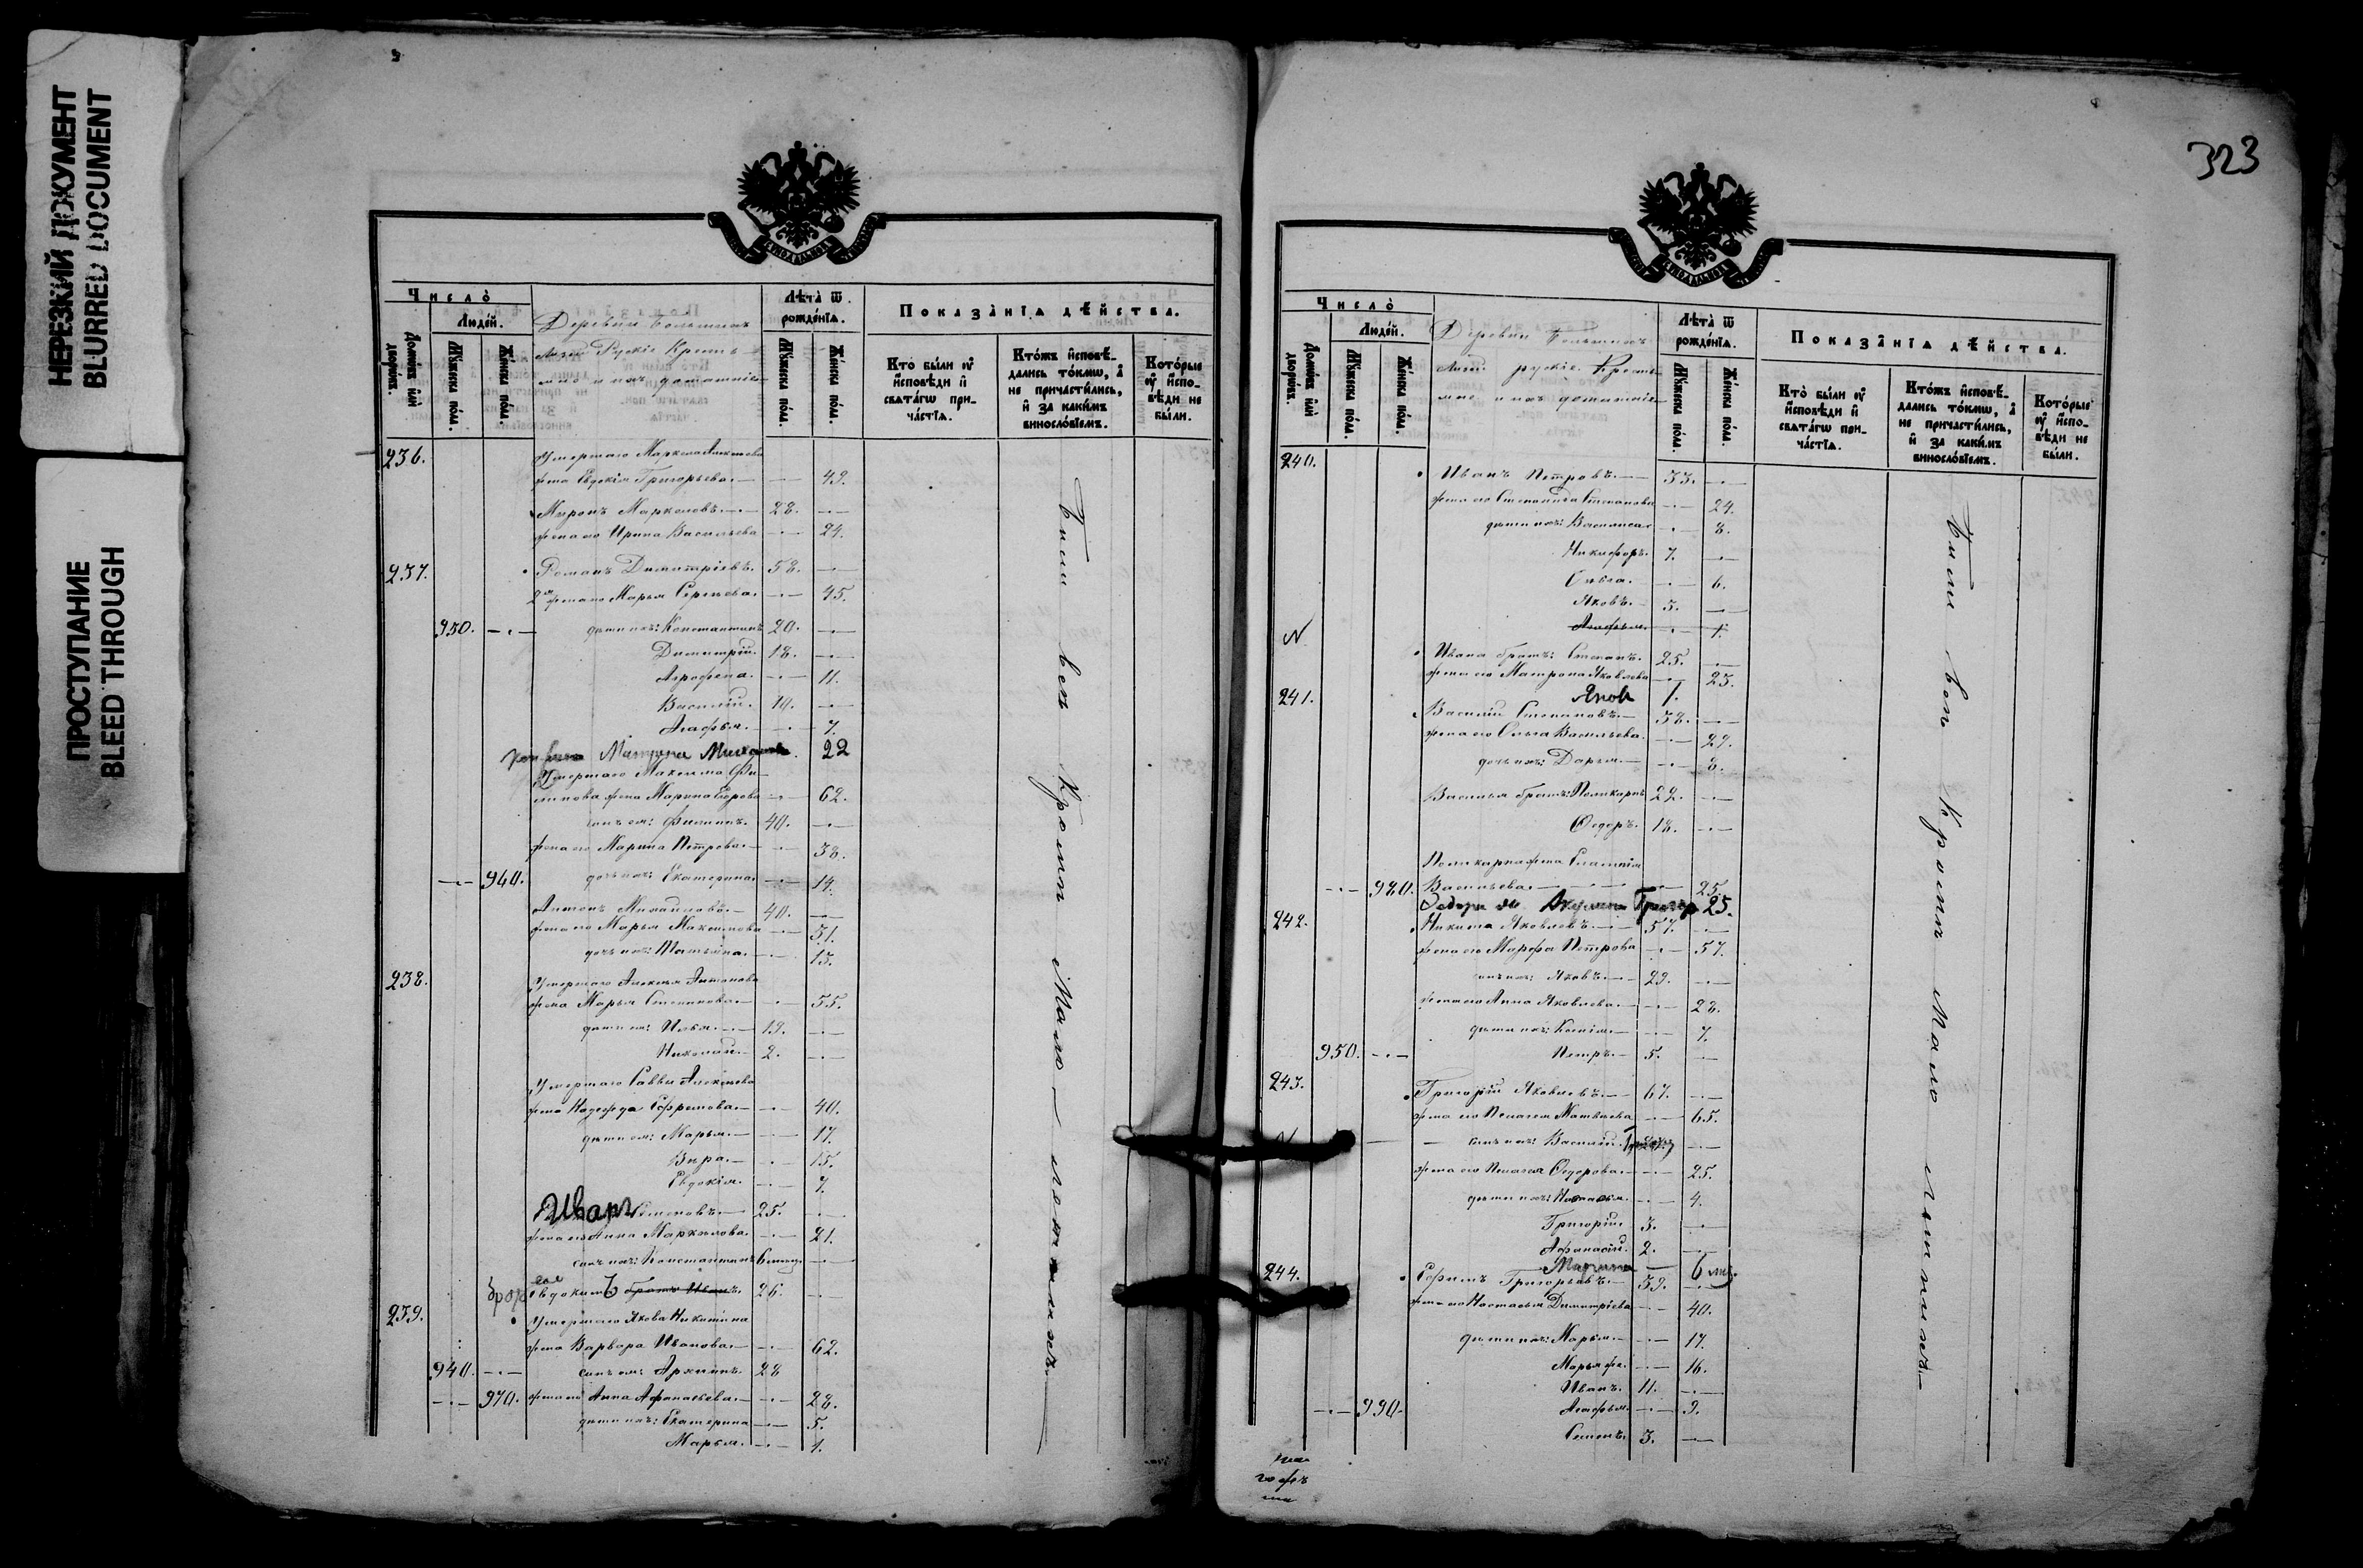 НЕРЕЗКИЙ ДОКУМЕНТ
BLURRED DOCUMENT
ПРОСТУПАНИЕ
BLEED THROUGH
Число̀
Людей.
Домѡвъ илѝ дворѡвъ.
Мꙋжеска пола.
Женска пола.
Деревни Большихъ
Рускіе Крестья-
не и ихъ домашніе
Лѣта̀ ѿ рожденїѧ.
Мꙋжеска пола.
Женска пола.
Показанїѧ дѣйства.
Кто̀ были оу̓ исповѣди и҆ свѧтагѡ при-
частїѧ.
Ктожъ исповѣ-
дались токмѡ, а҆ не причастились, и҆ за какимъ винословїемъ.
Которые оу̓ испо-
вѣди не были.
236. Умершаго Маркела Алексѣева
жена Евдокія Григорьева. 49.
Миронъ Маркеловъ. 28.
жена его Ирина Васильева 24.
237. Романъ Димитріевъ. 58.
2я жена его Марья Сергѣева. 45.
930. дѣти ихъ: Константинъ 20.
Димитрій. 18.
Агрофена. 11.
Василій. 10.
Агафья. 7.
Матрона 22
Умершаго Максима Фи-
липова жена Марина Егорова 62.
сынъ ея: Филипъ. 40.
жена его Марина Петрова. 38.
940. дочь ихъ: Екатерина. 14.
Антонъ Михайловъ. 40.
жена его Марья Максимова 31.
дочь ихъ: Татьяна. 13.
238. Умершаго Алексѣя Антонова
жена Марья Степанова. 55.
дѣти ея: Илья. 19.
Николай. 2.
Умершаго Саввы Алексѣева
жена Надежда Ефремова. 40.
дѣти ея: Марья. 17.
Вѣра. 15.
Евдокія. 7.
Иванъ 25.
жена его Анна Маркелова. 21.
сынъ ихъ: Константинъ 6 мѣсяц.
Евдокимъ братъ Иванъ. 26.
239. Умершаго Якова Никитина
жена Варвара Иванова. 62.
940. сынъ ея: Архипъ. 28
970. жена его Анна Афанасьева. 28.
дѣти ихъ: Екатерина 5.
Марья. 1.
Были всѣ Кромѣ Мало-лѣтнихъ
323
Число̀
Людей.
Домѡвъ илѝ дворѡвъ.
Мꙋжеска пола.
Женска пола.
Деревни Большихъ
рускіе Крестья-
не и ихъ домашніе
Лѣта̀ ѿ рожденїѧ.
Мꙋжеска пола.
Женска пола.
Показанїѧ дѣйства.
Кто̀ были оу̓ исповѣди и҆ свѧтагѡ при-
частїѧ.
Ктожъ исповѣ-
дались токмѡ, а҆ не причастились, и҆ за какимъ винословїемъ.
Которые оу̓ испо-
вѣди не были.
240. Иванъ Петровъ. 33.
жена его Степанида Степанова 29.
дѣти ихъ: Василиса 8.
Никифоръ. 7.
Ольга. 6.
Яковъ. 3.
N Агафья. 1.
Ивана братъ: Степанъ. 25.
жена его Матрона Яковлева 23.
Яков 1.
241. Василій Степановъ. 38.
жена его Ольга Васильева. 29.
дочь ихъ: Дарья. 8.
Василья братъ: Поликарпъ 22.
Ѳедоръ. 18.
Поликарпа жена
980. Васильева. 25.
Федора Акулина Григор 25.
242. Никита Яковлевъ. 57.
жена его Марфа Петрова 57.
сынъ ихъ: Яковъ. 29.
жена его Анна Яковлева. 28.
дѣти ихъ: Ксенія. 7.
950. Петръ. 5.
243. Григорій Яковлевъ. 67.
жена его Пелагея Матвѣева 65.
сынъ ихъ: Василій.
жена его Пелагея Ѳедорова. 25.
дѣти ихъ: Наталья. 4.
Григорій. 3.
Афанасій. 2.
Марина 6 мѣс.
244. Ефимъ Григорьевъ. 39.
жена его Настасья Димитріева 40.
дѣти ихъ: Марья. 17.
Марья же. 16.
Иванъ. 11.
990. Агафья. 9.
Семенъ. 3.
Были всѣ Кромѣ Мало лѣтнихъ